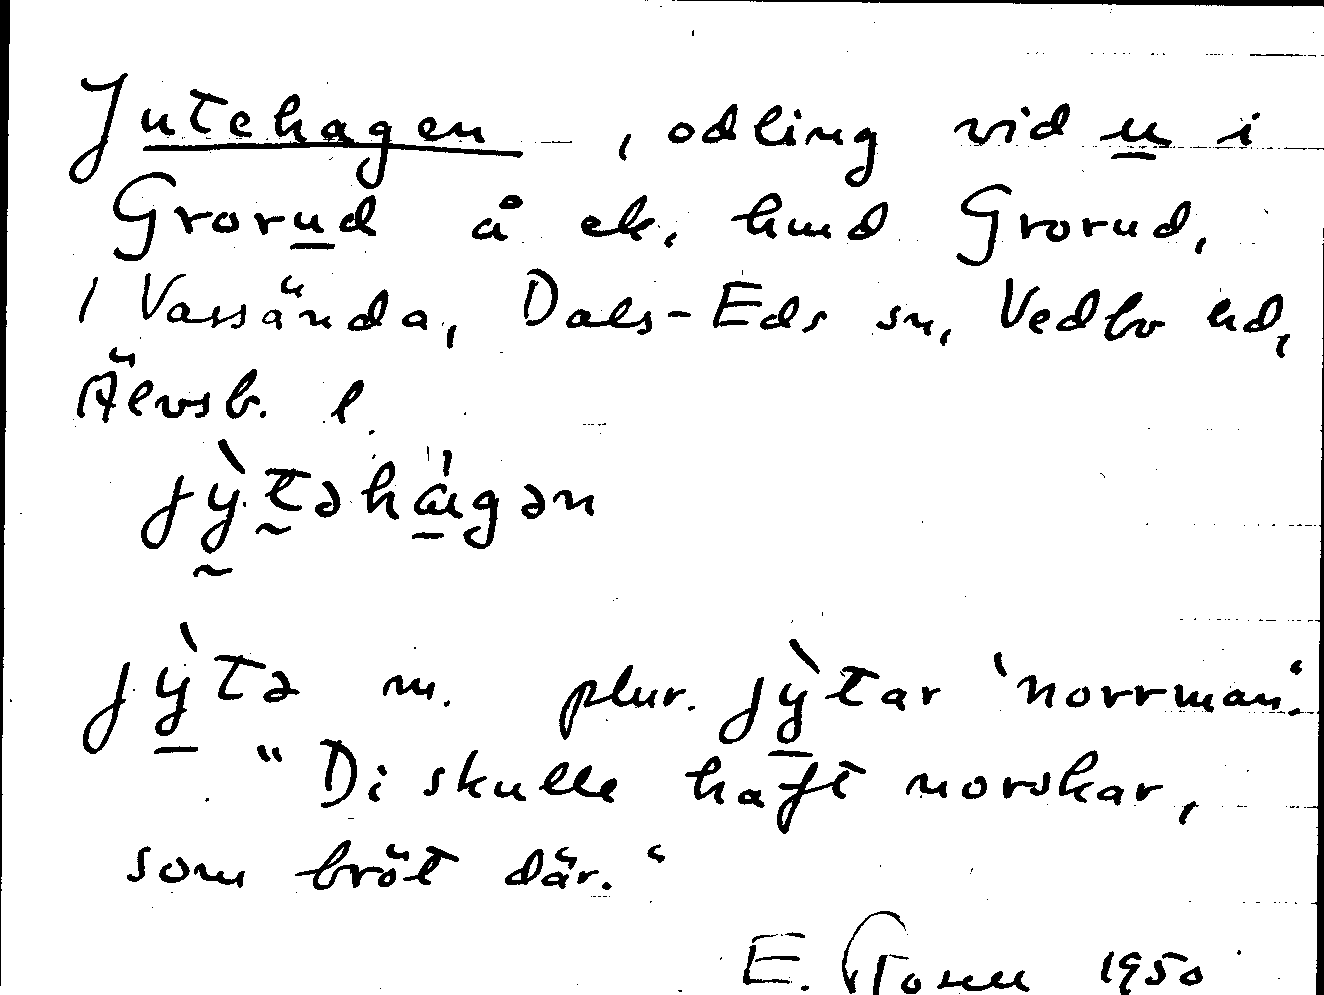 Jutehagen, odling vid u i
Grorud å ek. hmd Grorud,
/ Vassända, Dals-Eds sn, Vedbo hd,
Älvsb. l.
jỳtəhàgən
jỳtə m. plur. jỳtar 'norrman'.
"Di skulle haft norskar,
som bröt där."
E. 1950